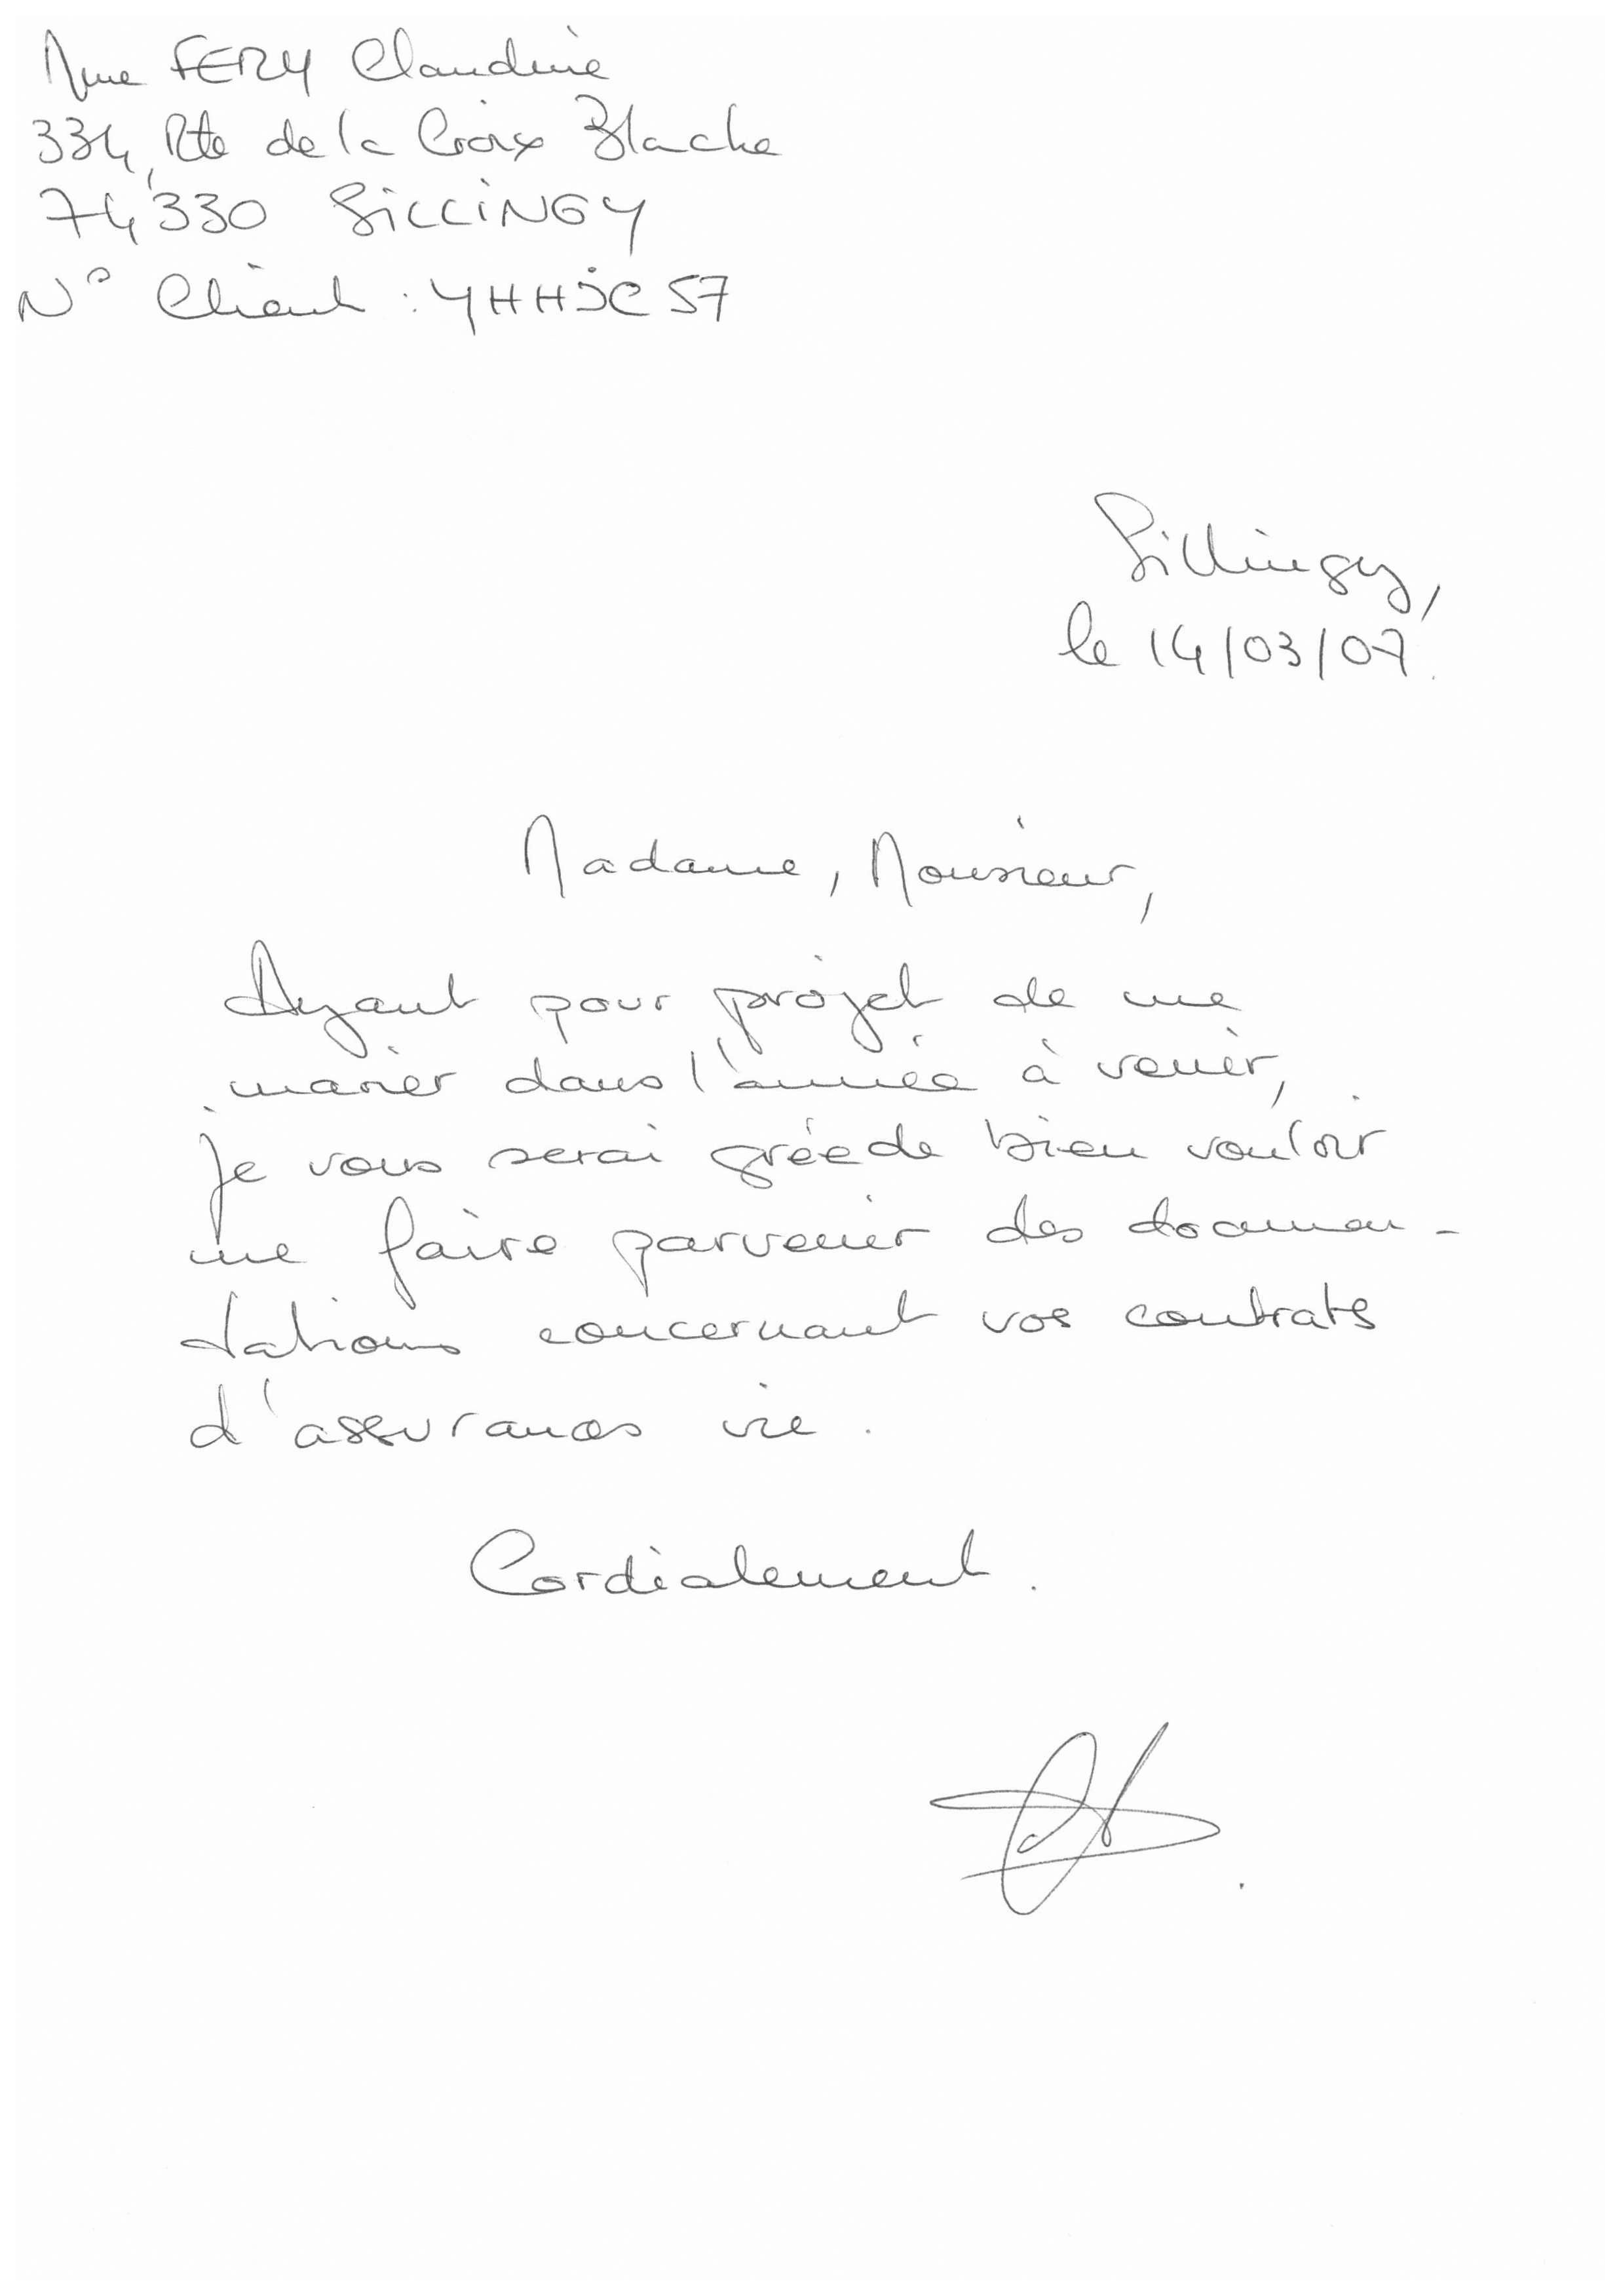 Mme FERY Claudine
334, Rte de la Croix Blanche
74330 SILLINGY
N° Client : YHHJC57
Sillingy,
le 14/03/07.
Madame, Monsieur,
Ayant pour projet de me
marier dans l'année à venir,
je vous serai gréede bien vouloir
me faire parvenir des documen-
tations concernant vos contrats
d'assurances vie.
Cordialement.